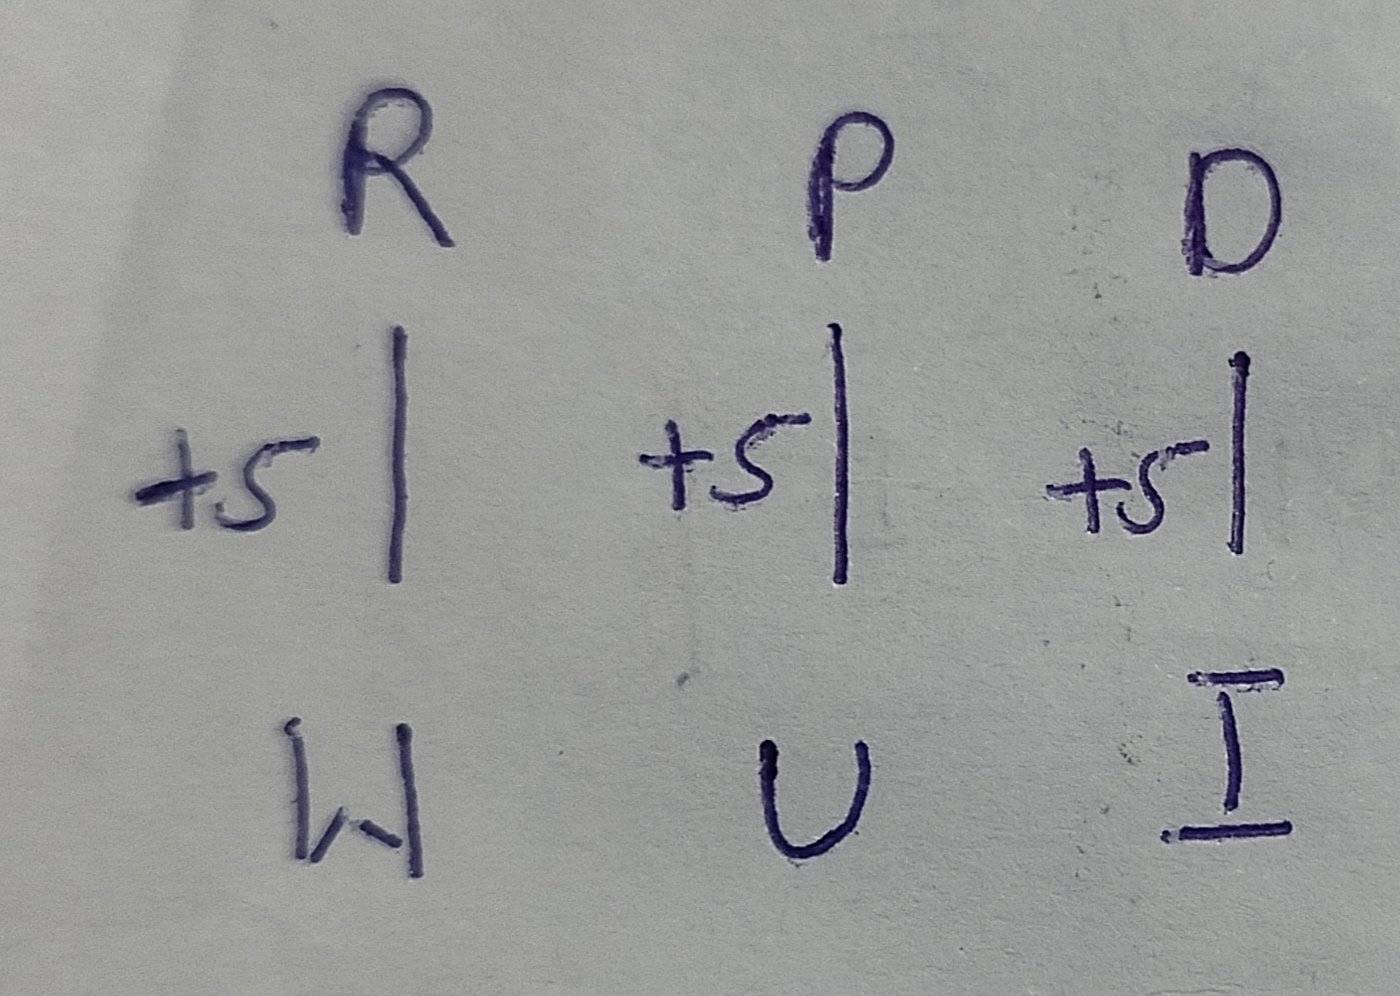 R P D
+5 +5 +5
W U I